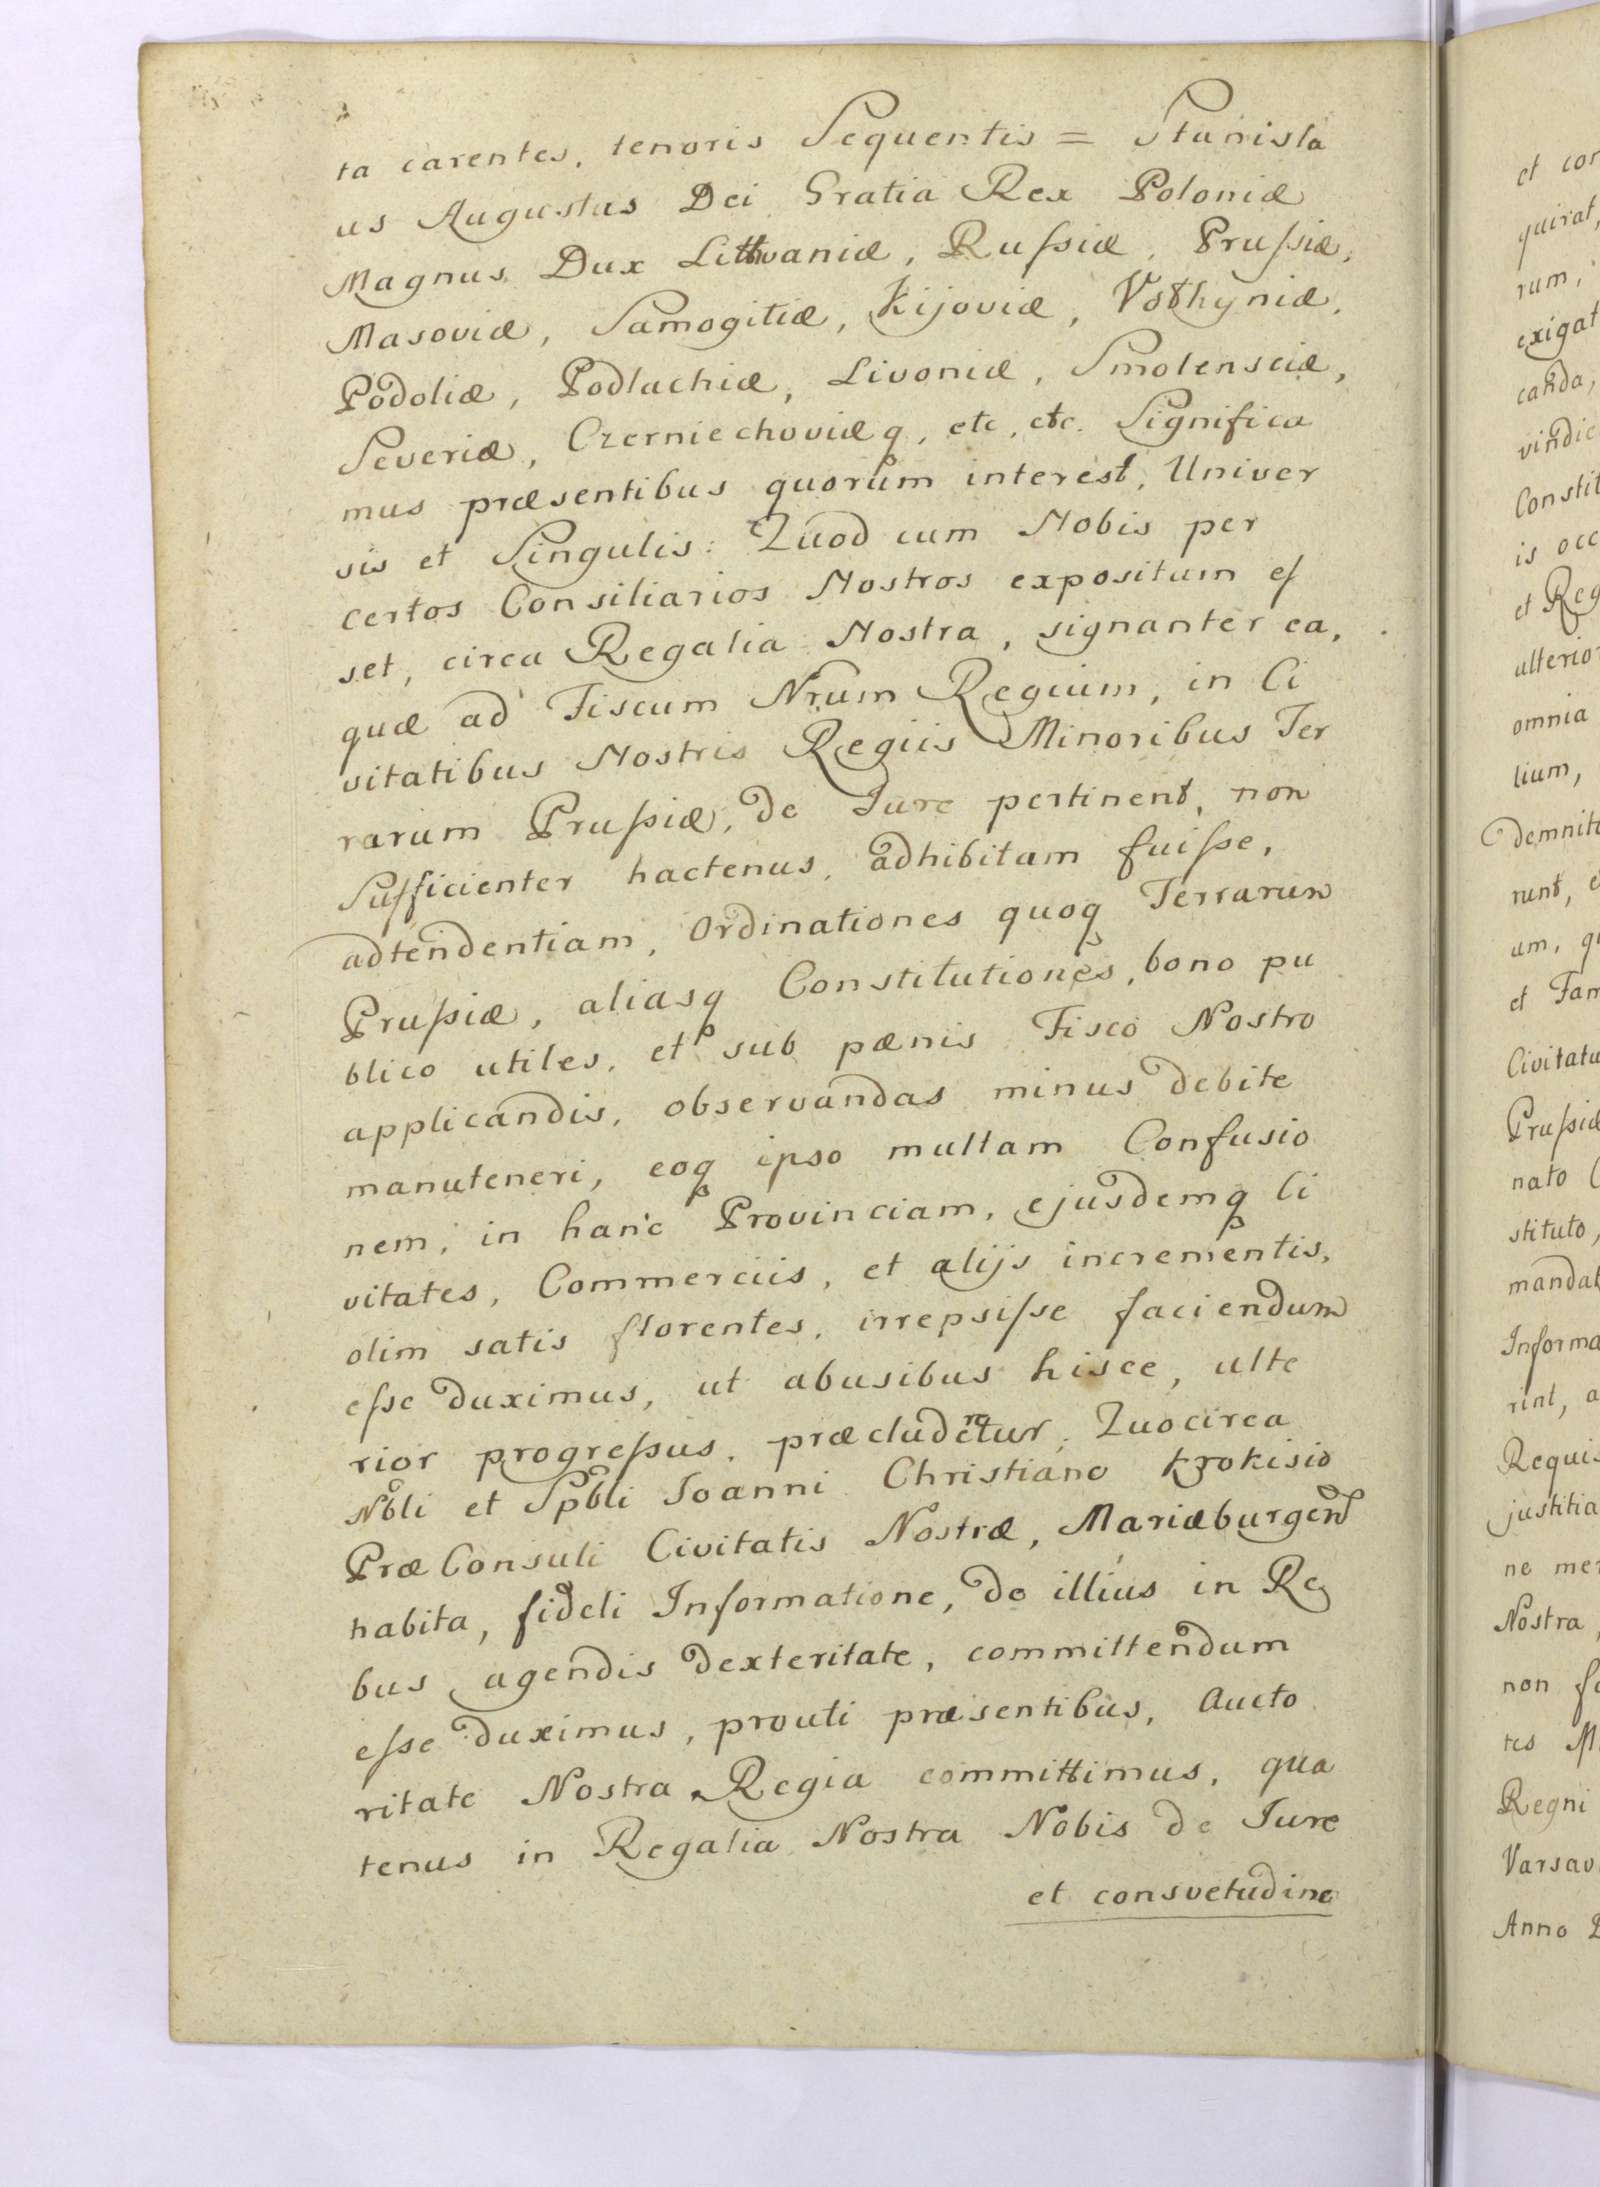 ta carentes, tenoris Sequentis = Stanisla
us Augustus Dei Gratia Rex Poloniæ
Magnus Dux Lithvaniæ, Rußiæ, Prußiæ,
Masoviæ, Samogitiæ, Kijoviæ, Volhyniæ,
Podoliæ, Podlachiæ, Livoniæ, Smolensciæ,
Severiæ, Czerniechoviæq, etc, etc. Significa
mus præsentibus quorum interest, Univer
sis et Singulis: Quod cum Nobis per
certos Consiliarios Nostros expositum es
set, circa Regalia Nostra, signanter ea,
quæ ad Fiscum Nrum Regium, in Ci
vitatibus Nostris Regiis Minoribus Ter
rarum Prußiæ, de Jure pertinent, non
Sufficienter hactenus, adhibitam fuiſse,
adtendentiam, Ordinationes quoq Terrarum
Prußiæ, aliasq Constitutiones, bono pu
blico utiles, et sub pænis Fisco Nostro
applicandis, observandas minus debite
manuteneri, eoq ipso multam Confusio
nem, in hanc Provinciam, ejusdemq Ci
vitates, Commerciis, et alijs incrementis,
olim satis florentes, irrepsiſse faciendum
eſse duximus, ut abusibus hisce, ulte
rior progreſsus, præcluderetur, Quocirca
Nbli et Spbli Joanni Christiano Krokisio
PræConsuli Civitatis Nostræ, Mariæburgen
habita, fideli Informatione, de illius in Re
bus agendis dexteritate, committendum
eſse duximus, prouti præsentibus, Aucto
ritate Nostra Regia committimus, qua
tenus in Regalia Nostra Nobis de Jure
et consvetudine
et con
quirat,
rum,
exigat
canda,
vindic
Constit
is occ
et Reg
ulterior
omnia
lium,
demnit
runt, e
um, qu
et Fam
Civitatu
Prußiæ
nato C
stituto,
mandat
Informa
rint, a
Requis
justitia
ne mer
Nostra,
non fa
tes M
Regni
Varsav
Anno D